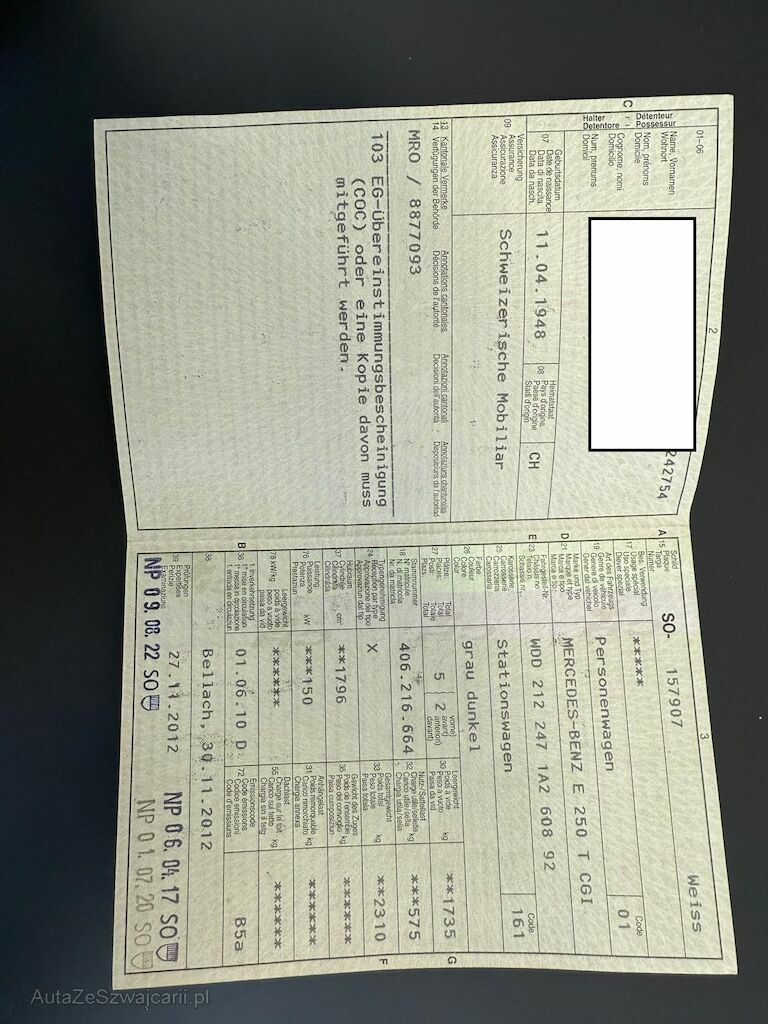 01-06
C
Détenteur
Possessur
Halter
Detentore
Name, Vornamen
Wohnort
Nom, prénoms
Domicile
Cognome, nomi
Domicilio
Num, prenums
Domicil
2
242754
07
Geburtsdatum
Date de naissance
Data di nascita
Data da nasch.
11.04.1948
08
Heimatstaat
Pays d'origine
Paese d'origine
Stadi d'origin
CH
09
Versicherung
Assurance
Assicurazione
Assicuranza
Schweizerische Mobiliar
13 Kantonale Vermerke Annotations cantonales Annotazioni cantonali Annotaziuns chantunalas
14 Verfügungen der Behörde Décisions de l'autorité Decisioni dell'autorità Disposiziuns da l'autoritad
MRO / 8877093
103 EG-Übereinstimmungsbescheinigung
(COC) oder eine Kopie davon muss
mitgeführt werden.
3
A 15
Schild
Plaque
Targa
Numer
SO- 157907
Weiss
17
Bes. Verwendung
Usage spécial
Uso speciale
Diever spezial
*****
19
Art des Fahrzeugs
Genre de véhicule
Genere di veicolo
Gener dal vehichel
Personenwagen
Code
01
D 21
Marke und Typ
Marque et type
Marca e tipo
Marca e tip
MERCEDES-BENZ E 250 T CGI
E 23
Fahrgestell-Nr.
Châssis no
Telaio n.
Schassis nr.
WDD 212 247 1A2 608 92
25
Karosserie
Carrosserie
Carrozzeria
Carossaria
Stationswagen
Code
161
26
Farbe
Couleur
Colore
Color
grau dunkel
27
Plätze: Total
Places: Total
Posti: Totale
Plazs: Total
5
( 2
vorne)
avant)
anteriori)
davant)
30
Leergewicht
Poids à vide
Peso a vuoto
Paisa da vid
kg
**1735
G
18
Stammnummer
N° matricule
N. di matricola
Nr. da matricla
406.216.664
32
Nutz-/Sattellast
Charge utile/sellette
Carico utile/sella
Chargia utila/sella
kg
***575
24
Typengenehmigung
Réception par type
Approvazione del tipo
Approvaziun dal tip
X
33
Gesamtgewicht
Poids total
Peso totale
Paisa totala
kg
**2310
F
37
Hubraum
Cylindrée
Cilindrata
Cilindrada
cm³
**1796
35
Gewicht des Zuges
Poids de l'ensemble
Peso del convoglio
Paisa cumposiziun
kg
******
76
Leistung
Puissance
Potenza
Prestaziun
kW
***150
31
Anhängelast
Poids remorquable
Carico rimorchiato
Chargia annexa
kg
******
78 kW/kg
Leergewicht
poids à vide
peso a vuoto
paisa da vid
******
55
Dachlast
Charge sur le toit
Carico sul tetto
Chargia sin il tetg
kg
******
B 36
1. Inverkehrsetzung
1re mise en circulation
1a messa in circolazione
1. entrada en circulaziun
01.06.10 D
72
Emissionscode
Code émissions
Codice emissioni
Code d'emissiuns
B5a
38
Bellach, 30.11.2012
39
Prüfungen
Expertises
Perizie
Examinaziuns
27.11.2012
NP 06.04.17 SO
NP 09.08.22 SO
NP 01.07.20 SO
AutaZeSzwajcarii.pl